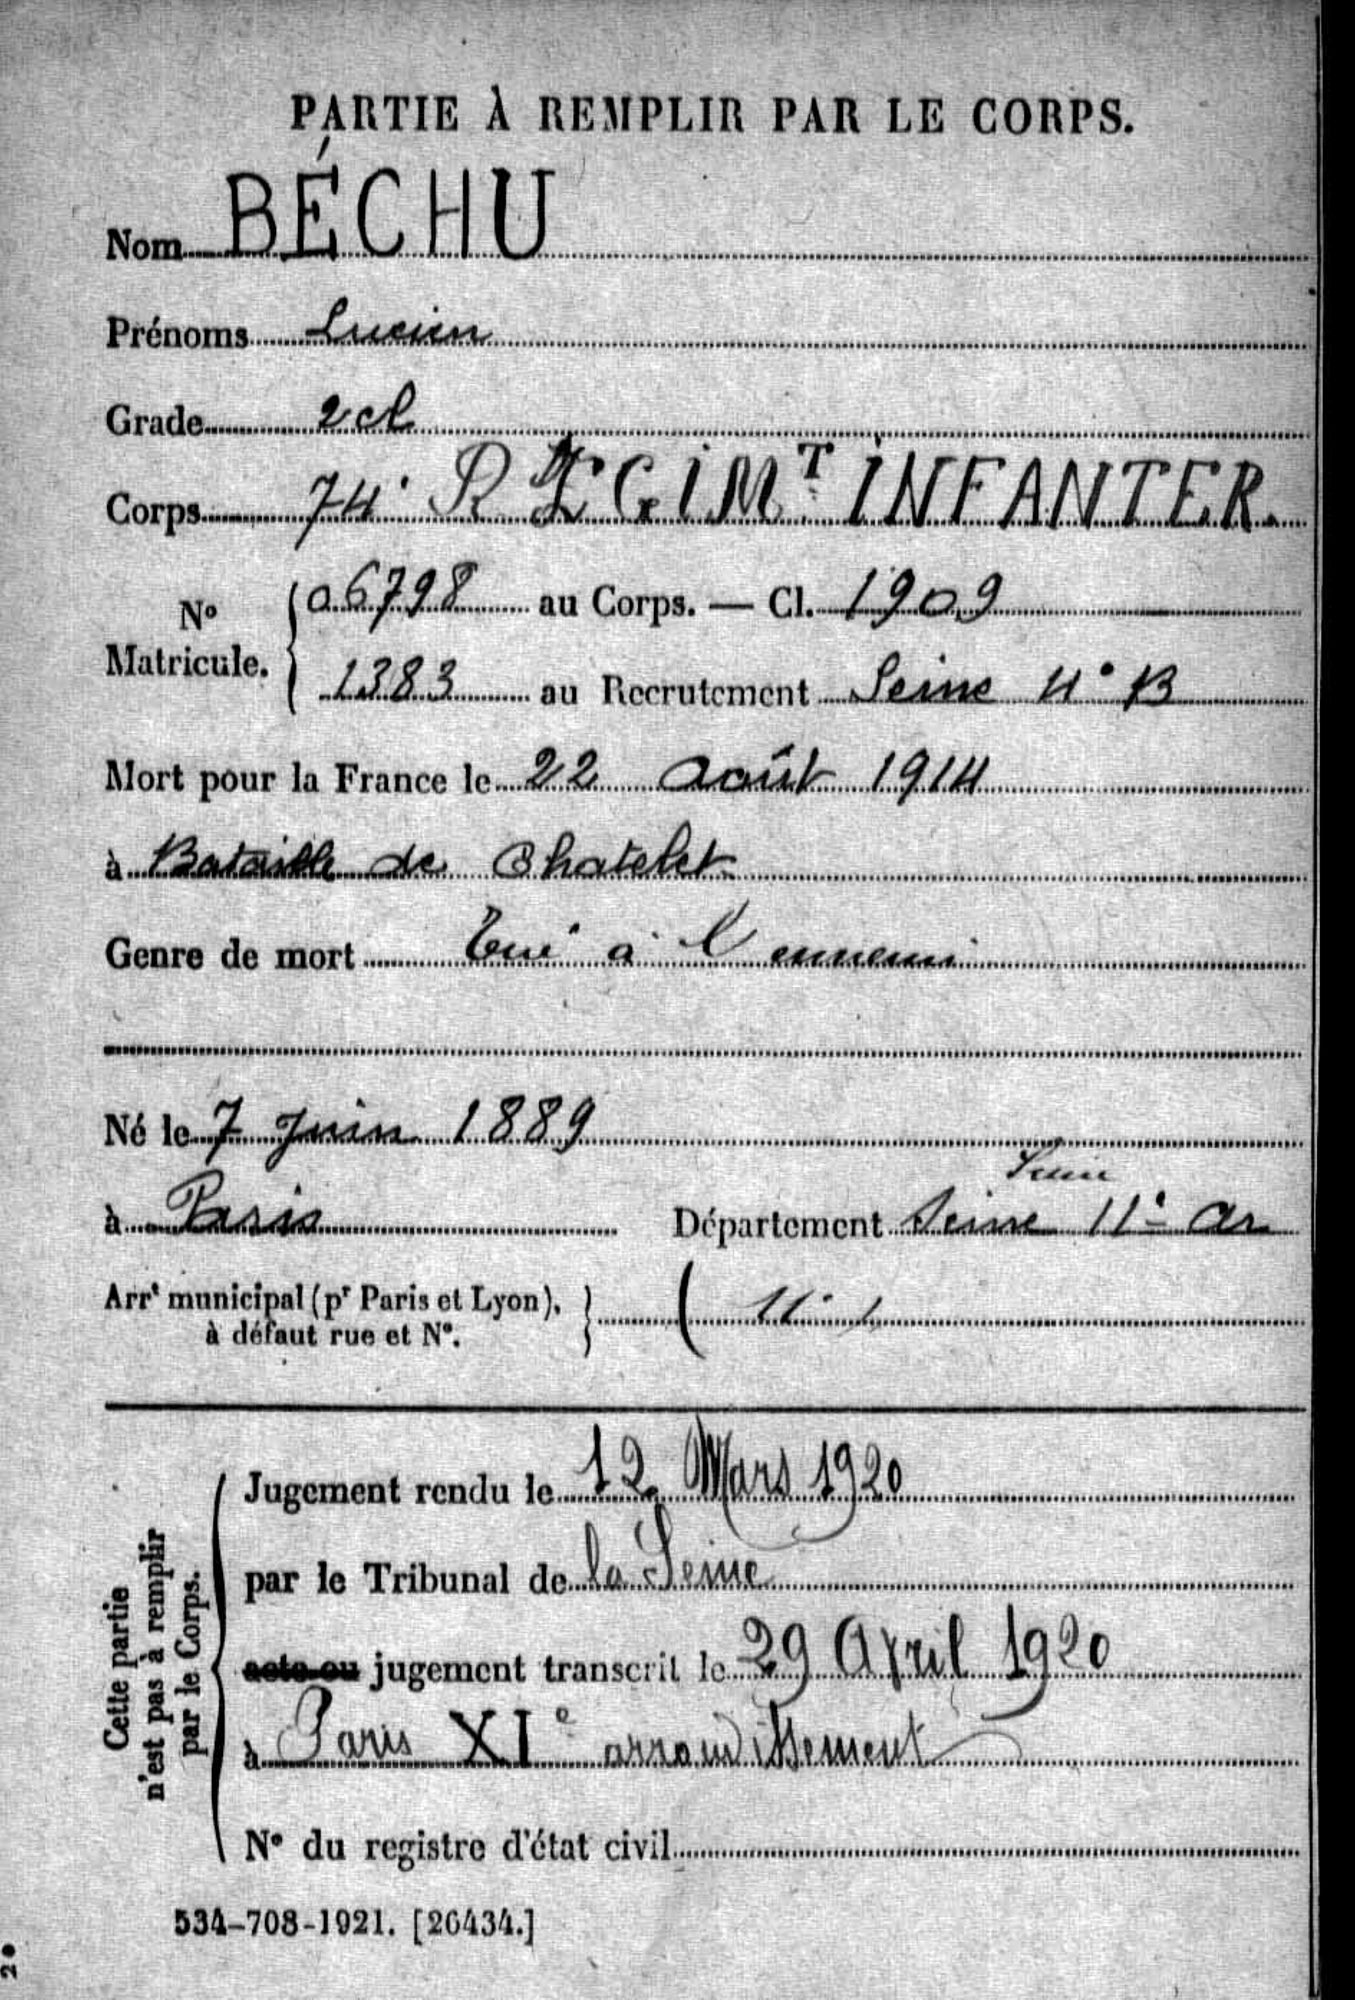 PARTIE À REMPLIR PAR LE CORPS.
Nom BÉCHU
Prénoms Lucien
Grade 2 cl
Corps 74e REGIMT INFANTER.
No Matricule. 06798 au Corps. — Cl. 1909
1383 au Recrutement Seine 4e B
Mort pour la France le 22 août 1914
à Bataille de Chatelet
Genre de mort Tué à l'ennemi
Né le 7 Juin 1889
Seine
à Paris Département Seine 11e Ar
Arrt municipal (pr Paris et Lyon), à défaut rue et No. 11e
Cette partie n'est pas à remplir par le Corps.
Jugement rendu le 12 Mars 1920
par le Tribunal de la Seine
acte ou jugement transcrit le 29 Avril 1920
à Paris XIe arrondissement
No du registre d'état civil
534-708-1921. [26434.]